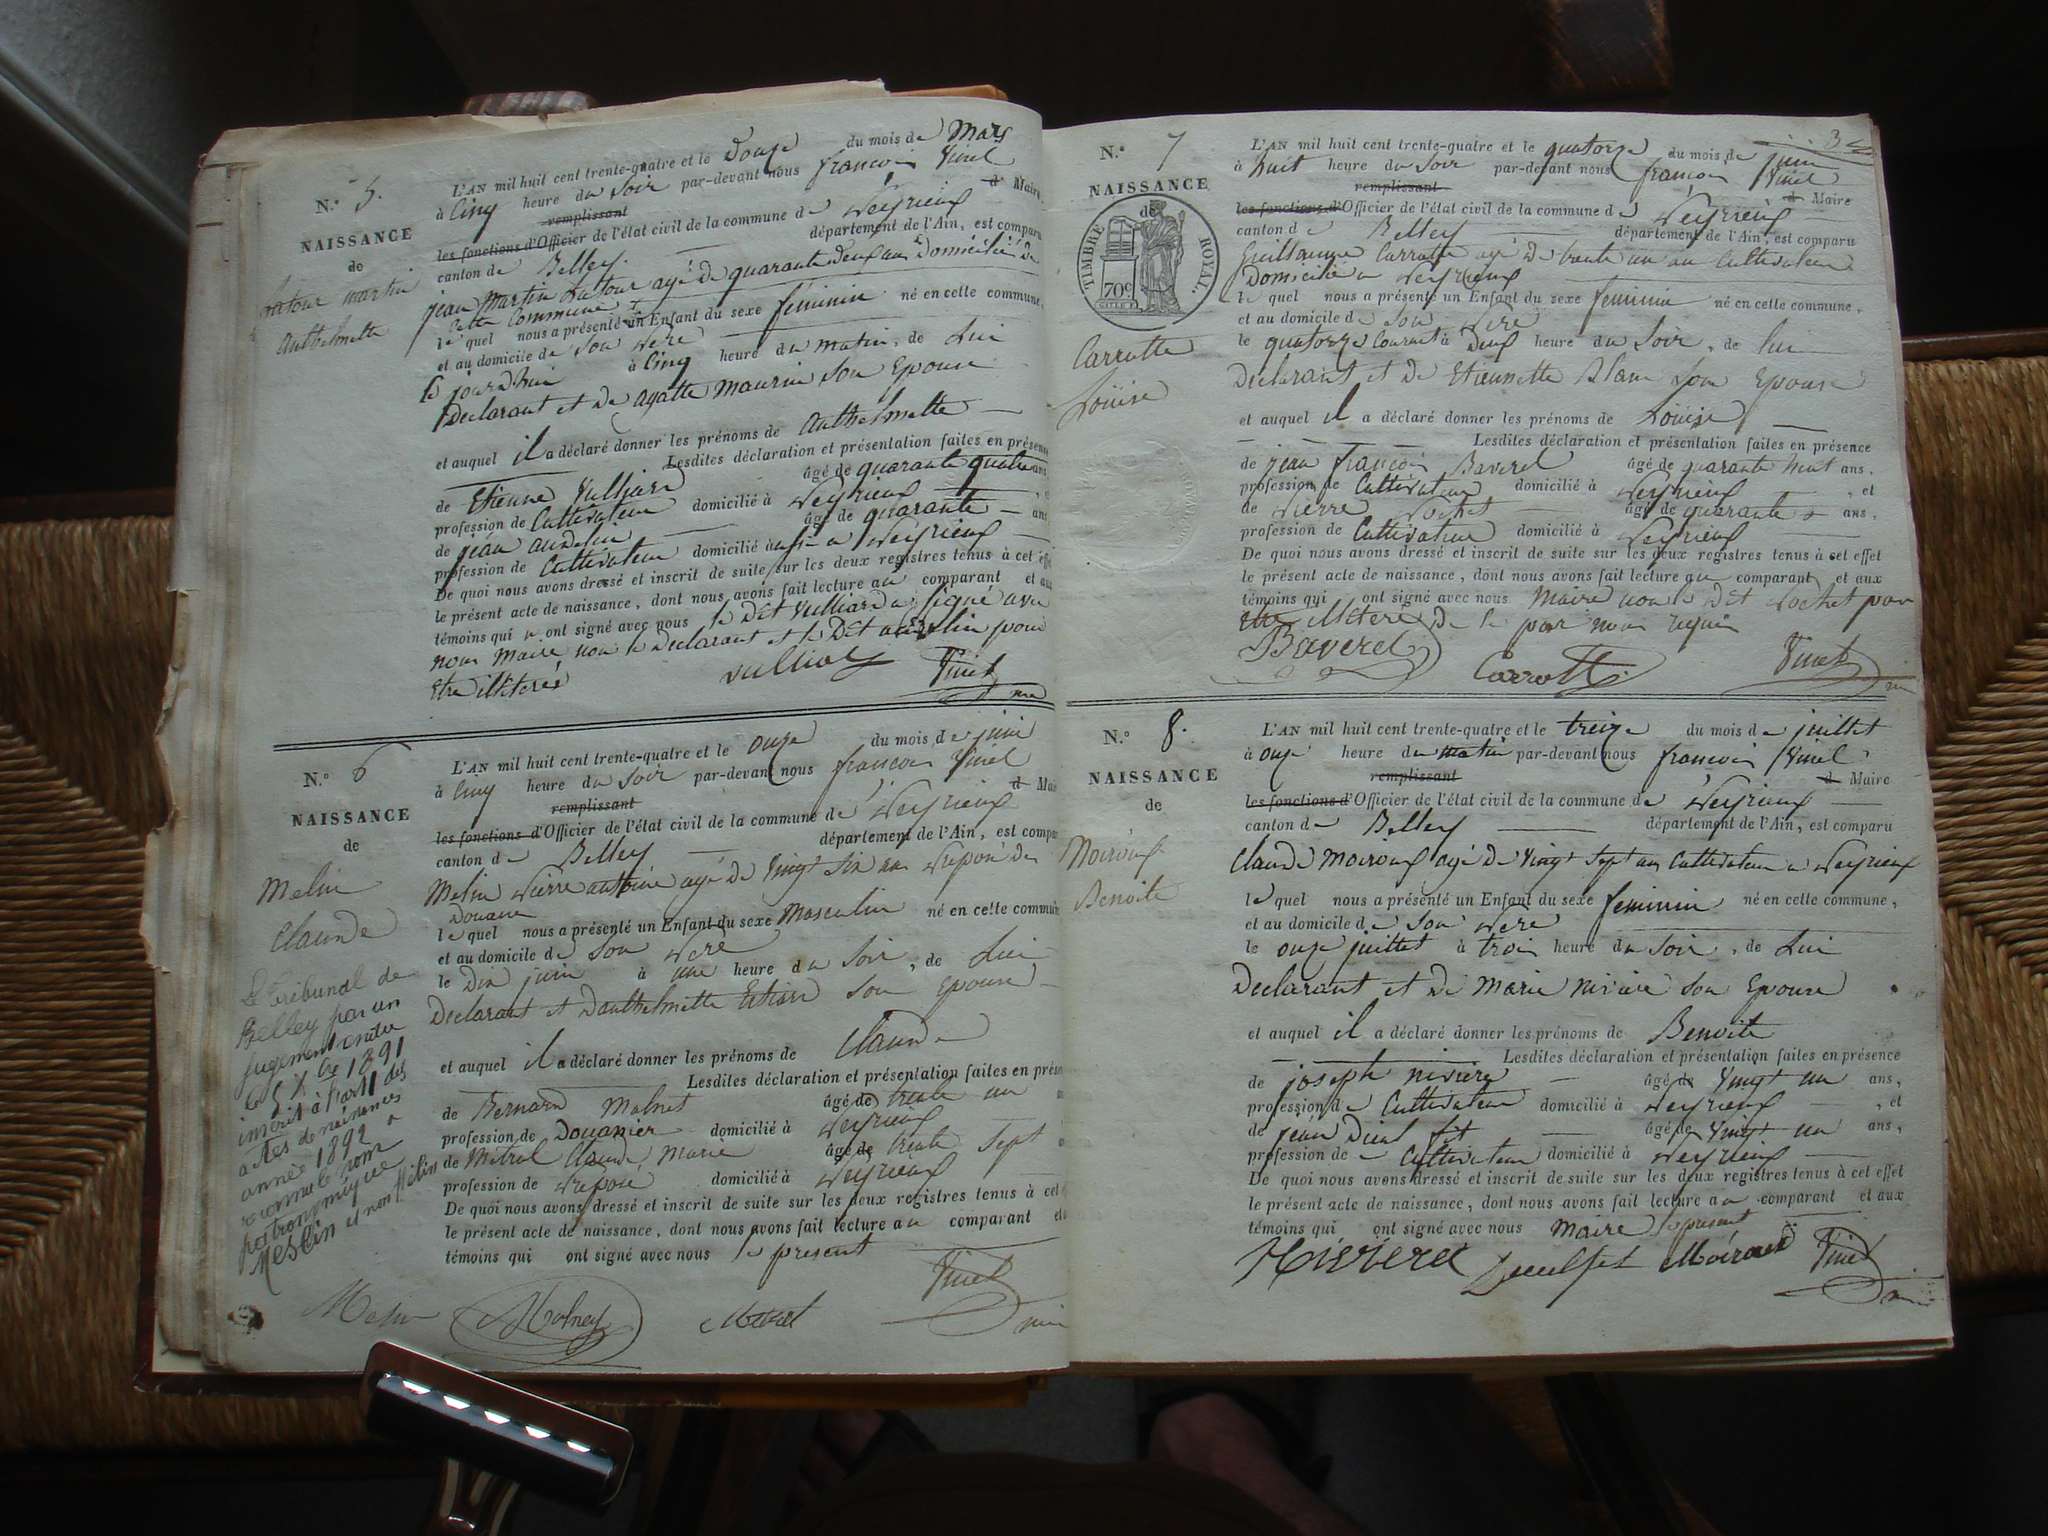 N.º 5.
NAISSANCE
de
Latour martin
Anthelmette
L'AN mil huit cent trente-quatre et le Douze du mois de Mars
à Cinq heure du Soir par-devant nous francois Vinet
remplissant d Maire
les fonctions d'Officier de l'état civil de la commune de Peyrieux
canton de Belley département de l'Ain, est comparu
jean Martin Latour agé de quarante deux ans Domicilié de
Cette Commune
le quel nous a présenté un Enfant du sexe feminin né en cette commune,
et au domicile de Son Pere
le jourdhui à Cinq heure du matin, de Lui
Déclarant et De agatte maurin Son Epouse
et auquel il a déclaré donner les prénoms de Anthelmette
Lesdites déclaration et présentation faites en présence
de Etienne Vulliard âgé de quarante quatre ans
profession de Cultivateur domicilié à Peyrieux, et
de jean âgé de quarante ans
profession de Cultivateur domicilié à Peyrieux
De quoi nous avons dressé et inscrit de suite sur les deux registres tenus à cet effet
le présent acte de naissance, dont nous avons fait lecture au comparant et aux
témoins qui ont signé avec nous le Dit Vulliard a signé avec
nous Maire non le Déclarant et le Dit pour
Etre illiteré
Vinet
N.º 6
NAISSANCE
de
Melin
Claude
Le Tribunal de
Belley par un
jugement rendu
le 5 Xbre 1891
inscrit à part 11 des
actes de naissances
année 1892 a
reconnu le nom
patronymique
Meslin et non Mélin
L'AN mil huit cent trente-quatre et le onze du mois de juin
à Cinq heure du Soir par-devant nous francois Vinet
remplissant d Maire
les fonctions d'Officier de l'état civil de la commune de Peyrieux
canton de Belley département de l'Ain, est comparu
Melin Pierre antoine agé de Vingt Six ans Préposé des
Douane
le quel nous a présenté un Enfant du sexe Masculin né en cette commune
et au domicile de Son Pere
le Dix juin à une heure du Soir, de Lui
Déclarant et Danthelmette Son Epouse
et auquel il a déclaré donner les prénoms de Claude
Lesdites déclaration et présentation faites en présence
de Bernard Molnet âgé de trente un
profession de Douanier domicilié à Peyrieux
de Mitral Claude Marie âgé de trente Sept
profession de Préposé domicilié à Peyrieux
De quoi nous avons dressé et inscrit de suite sur les deux registres tenus à cet
le présent acte de naissance, dont nous avons fait lecture au comparant et
témoins qui ont signé avec nous le présent
Vinet
N.º 7
NAISSANCE
de
TIMBRE ROYAL.
70c
Carrotte
Loüise
3
L'AN mil huit cent trente-quatre et le quatorze du mois de juin
à huit heure du Soir par-devant nous francois Vinet
remplissant d Maire
les fonctions d'Officier de l'état civil de la commune de Peyrieux
canton de Belley département de l'Ain, est comparu
Guillaume Carrotte agé de trente un an Cultivateur
Domicilié a Peyrieux
le quel nous a présenté un Enfant du sexe feminin né en cette commune,
et au domicile de Son Pere
le quatorze Courant à Deux heure du Soir, de lui
Déclarant et De Etiennette Blanc Son Epouse
et auquel il a déclaré donner les prénoms de Loüise
Lesdites déclaration et présentation faites en présence
de jean francois Baverel âgé de quarante huit ans,
profession de Cultivateur domicilié à Peyrieux, et
de Pierre Pochet âgé de quarante ans,
profession de Cultivateur domicilié à Peyrieux
De quoi nous avons dressé et inscrit de suite sur les deux registres tenus à cet effet
le présent acte de naissance, dont nous avons fait lecture au comparant et aux
témoins qui ont signé avec nous Maire non le Dit Pochet pour
Etre illiteré De le par nous requis
Baverel Carrott Vinet
N.º 8.
NAISSANCE
de
Moiroux
Benoite
L'AN mil huit cent trente-quatre et le treize du mois de juillet
à onze heure du matin par-devant nous francois Vinet
remplissant d Maire
les fonctions d'Officier de l'état civil de la commune de Peyrieux
canton de Belley département de l'Ain, est comparu
Claude Moiroux agé De Vingt Sept ans Cultivateur a Peyrieux
le quel nous a présenté un Enfant du sexe feminin né en cette commune,
et au domicile de Son Pere
le onze juillet à trois heure du Soir, de Lui
Déclarant et De Marie Son Epouse
et auquel il a déclaré donner les prénoms de Benoite
Lesdites déclaration et présentation faites en présence
de joseph niviere âgé de Vingt un ans,
profession de Cultivateur domicilié à Peyrieux, et
de jean âgé de Vingt un ans,
profession de Cultivateur domicilié à Peyrieux
De quoi nous avons dressé et inscrit de suite sur les deux registres tenus à cet effet
le présent acte de naissance, dont nous avons fait lecture au comparant et aux
témoins qui ont signé avec nous Maire le présent
Moiroud Vinet